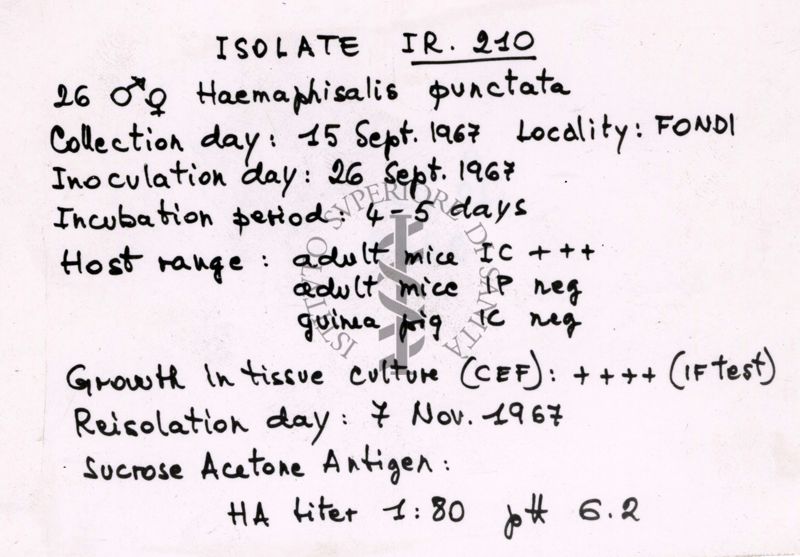 ISOLATE IR. 210
26 ♂♀ Haemaphisalis punctata
Collection day: 15 Sept. 1967 Locality: FONDI
Inoculation day: 26 Sept. 1967
Incubation period: 4-5 days
Host range: adult mice IC +++
adult mice IP neg
guinea pig IC neg
Growth in tissue culture (CEF): ++++ (IF test)
Reisolation day: 7 Nov. 1967
Sucrose Acetone Antigen:
HA titer 1:80 pH 6.2
ISTITUTO SVPERIORE DI SANITA